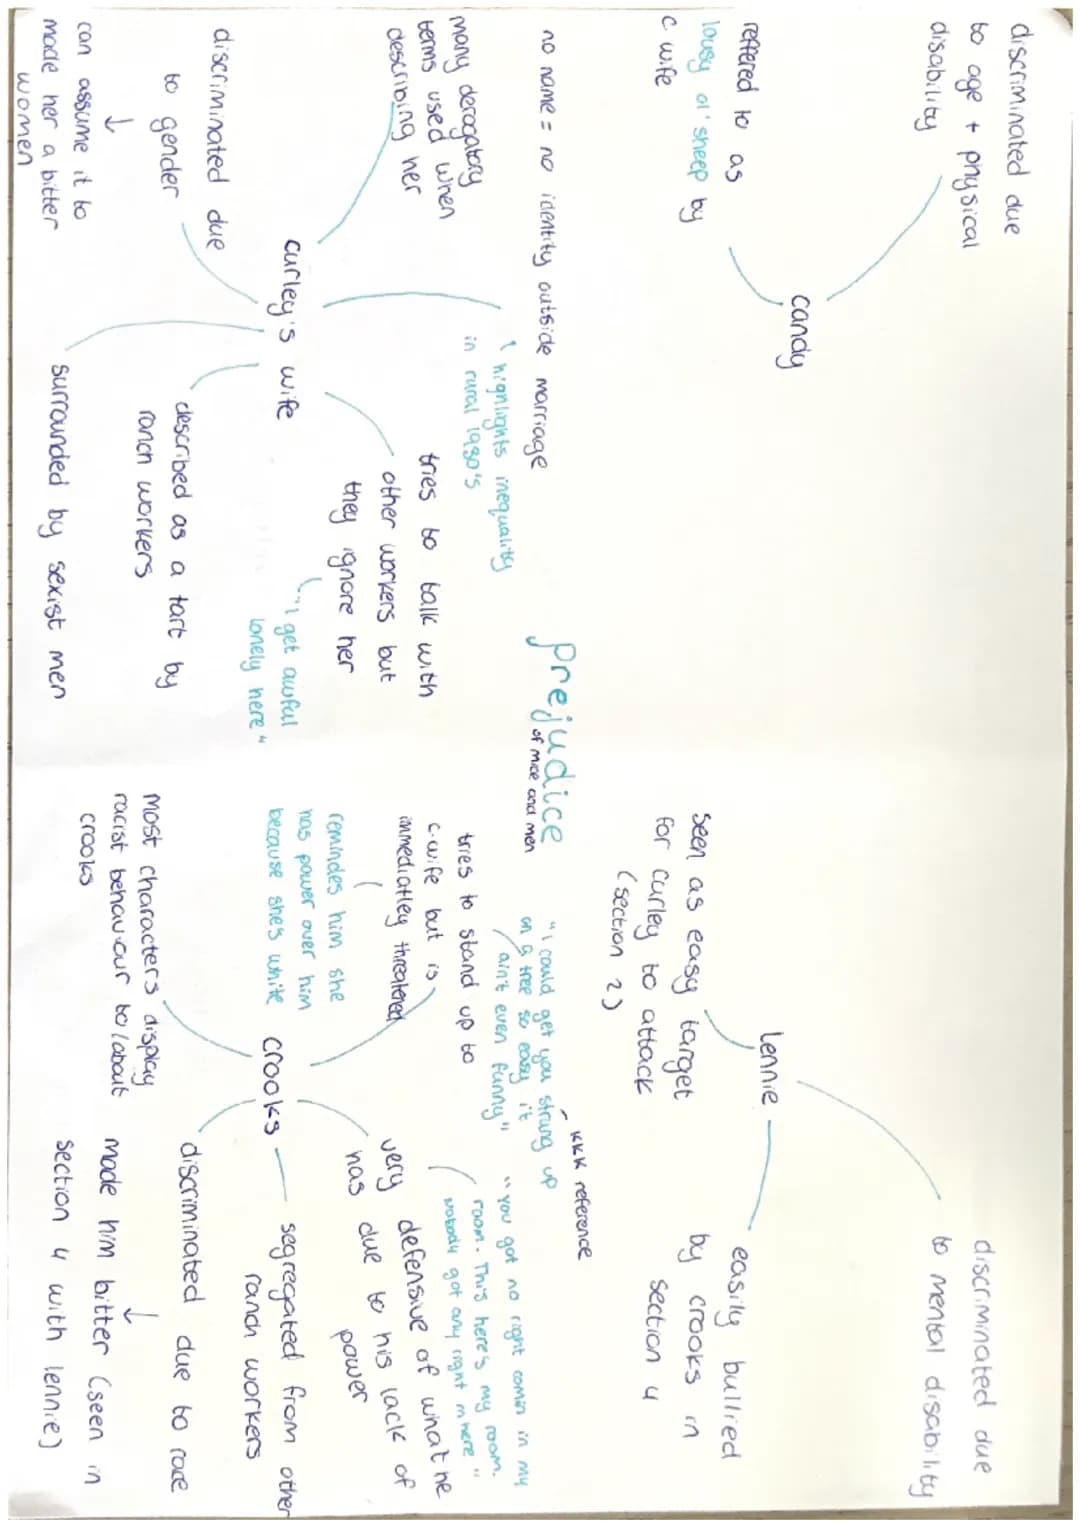 prejudice
of mice and men
candy
discriminated due
to age + physical
disability
reffered to as
lousy ol' sheep by
c wife
lennie
discriminated due
to mental disability
seen as easy target
for curley to attack
(section 2)
easily bullied
by crooks in
section 4
curley's wife
no name = no identity outside marriage
highlights inequality
in rural 1930's
many derogatory
terms used when
describing her
discriminated due
to gender
↓
can assume it to
made her a bitter
women
tries to talk with
other workers but
they ignore her
"i get awful
lonely here"
described as a tart by
ranch workers
surrounded by sexist men
crooks
KKK reference
"i could get you strung up
on a tree so easy it
ain't even funny"
tries to stand up to
c.wife but is
immediatley threatened
remindes him she
has power over him
because she's white
most characters display
racist behaviour to/about
crooks
"you got no right comin in my
room. This here's my room.
Nobody got any right in here"
very defensive of what he
has due to his lack of
power
segregated from other
ranch workers
discriminated due to race
↓
made him bitter (seen in
section 4 with lennie)